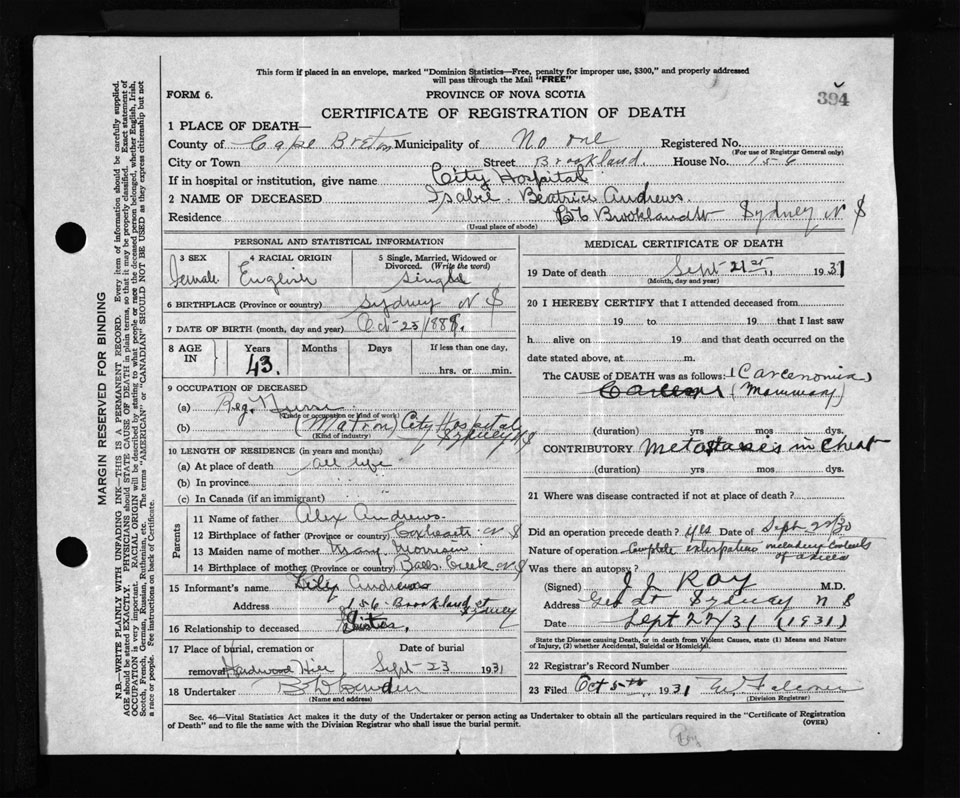 This form if placed in an envelope, marked "Dominion Statistics—Free, penalty for improper use, $300," and properly addressed
will pass through the Mail "FREE"
FORM 6. PROVINCE OF NOVA SCOTIA 394
CERTIFICATE OF REGISTRATION OF DEATH
1 PLACE OF DEATH—
County of Cape Breton Municipality of No one Registered No.
(For use of Registrar General only)
City or Town Street Brookland. House No. 156
If in hospital or institution, give name City Hospital
2 NAME OF DECEASED Isabel Beatrice Andrews.
Residence 156 Brookland St Sydney N S
(Usual place of abode)
PERSONAL AND STATISTICAL INFORMATION
3 SEX 4 RACIAL ORIGIN 5 Single, Married, Widowed or
Divorced. (Write the word)
Female English Single
6 BIRTHPLACE (Province or country) Sydney N S
7 DATE OF BIRTH (month, day and year) Oct 25/
8 AGE IN Years Months Days If less than one day,
43. hrs. or min.
9 OCCUPATION OF DECEASED
(a) Reg. Nurse
(Trade or occupation or kind of work)
(b) (Matron) City Hospital
Sydney N S
(Kind of industry)
10 LENGTH OF RESIDENCE (in years and months)
(a) At place of death all life
(b) In province " "
(c) In Canada (if an immigrant) " "
Parents
11 Name of father Alex Andrews
12 Birthplace of father (Province or country) Coxheath N S
13 Maiden name of mother Mary Morrison
14 Birthplace of mother (Province or country) Balls Creek N S
15 Informant's name Andrews
Address 156 Brookland St
Sydney
16 Relationship to deceased Sister.
17 Place of burial, cremation or Date of burial
removal Hardwood Hill Sept 23 1931
18 Undertaker
(Name and address)
MEDICAL CERTIFICATE OF DEATH
19 Date of death Sept 21st, 1931
(Month, day and year)
20 I HEREBY CERTIFY that I attended deceased from
19 to 19 that I last saw
h alive on 19 and that death occurred on the
date stated above, at m.
The CAUSE OF DEATH was as follows: (Carcenomia)
(Mammary)
(duration) yrs mos dys.
CONTRIBUTORY Metastasies in Chest
(duration) yrs mos dys.
21 Where was disease contracted if not at place of death?
Did an operation precede death? yes Date of Sept 22/30
Nature of operation Complete extirpation including Contents
of axilla
Was there an autopsy?
(Signed) J J Roy M.D.
Address Geo St Sydney N S
Date Sept 22/31 (1931)
State the Disease causing Death, or in death from Violent Causes, state (1) Means and Nature
of Injury, (2) whether Accidental, Suicidal or Homicidal.
22 Registrar's Record Number
23 Filed Oct 5th, 1931
(Division Registrar)
Sec. 46—Vital Statistics Act makes it the duty of the Undertaker or person acting as Undertaker to obtain all the particulars required in the "Certificate of Registration
of Death" and to file the same with the Division Registrar who shall issue the burial permit. (OVER)
MARGIN RESERVED FOR BINDING
N.B.—WRITE PLAINLY WITH UNFADING INK—THIS IS A PERMANENT RECORD. Every item of information should be carefully supplied.
AGE should be stated EXACTLY. PHYSICIANS should STATE CAUSE OF DEATH in plain terms, so that it may be properly classified. Exact statement of
OCCUPATION is very important. RACIAL ORIGIN will be described by stating to what people or race the deceased person belonged, whether English, Irish,
Scotch, French, German, Russian, Ruthenian, etc. The terms "AMERICAN" or "CANADIAN" SHOULD NOT BE USED as they express citizenship but not
a race or people. See instructions on back of Certificate.